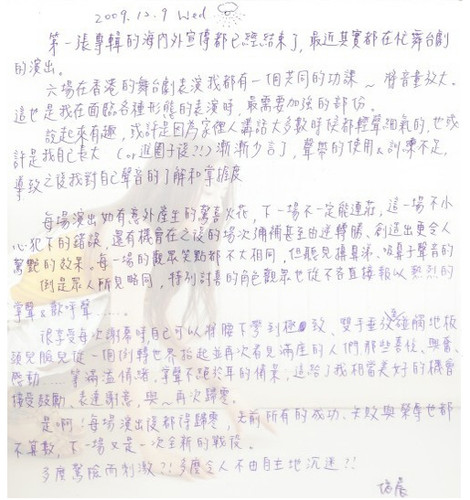 2009.12.9 Wed
第一張專輯的海內外宣傳都已經結束了,最近其實都在忙舞台劇
的演出。
六場在香港的舞台劇表演我都有一個共同的功課~將音量放大。
這也是我在面臨各種形態的表演時,最需要加強的部份。
說起來有趣,或許是因為家個人講話大多數時候都輕聲細氣的,也或
許是我自己長大(or進園子後?!)漸漸少言了,聲帶的使用&訓練不足,
導致之後我對自己聲音的了解和掌握度
每場演出如有意外產生的驚喜火花,下一場不一定能連莊,這一場不小
心犯下的錯誤,還有機會在之後的場次彌補甚至由逆轉勝,創造出更令人
驚艷的效果。每一場的觀眾笑點都不太相同,但聽見擤鼻涕、吸鼻子聲音的
倒是眾人所見略同,特別討喜的角色觀眾也從不吝直接報以熱烈的
掌聲&歡呼聲……
很享受每次謝幕時自己可以將腰下彎到極致、雙手垂放碰觸地板
頭兒臉兒從一個倒轉世界抬起並再次看見滿座的人們,那些喜悅、興奮、
感動……等滿溢情緒,掌聲不絕於耳的情景,這給了我相當美好的機會
接受鼓勵、表達謝意,與~再次歸零。
是啊!每場演出後都得歸零,先前所有的成功、失敗與榮辱也都
不算數,下一場又是一次全新的戰役。
多麼驚險而刺激?!多麼令人不由自主地沉迷?!